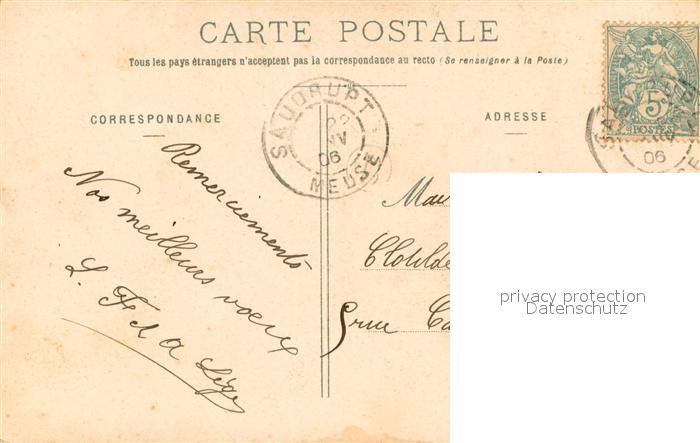 CARTE POSTALE
Tous les pays étrangers n'acceptent pas la correspondance au recto (Se renseigner à la Poste)
CORRESPONDANCE
ADRESSE
SAUDRUPT
06
MEUSE
5c
POSTES
06
Remerciements
Nos meilleurs voeux
L. F et A
Clotilde
5 rue
privacy protection
Datenschutz